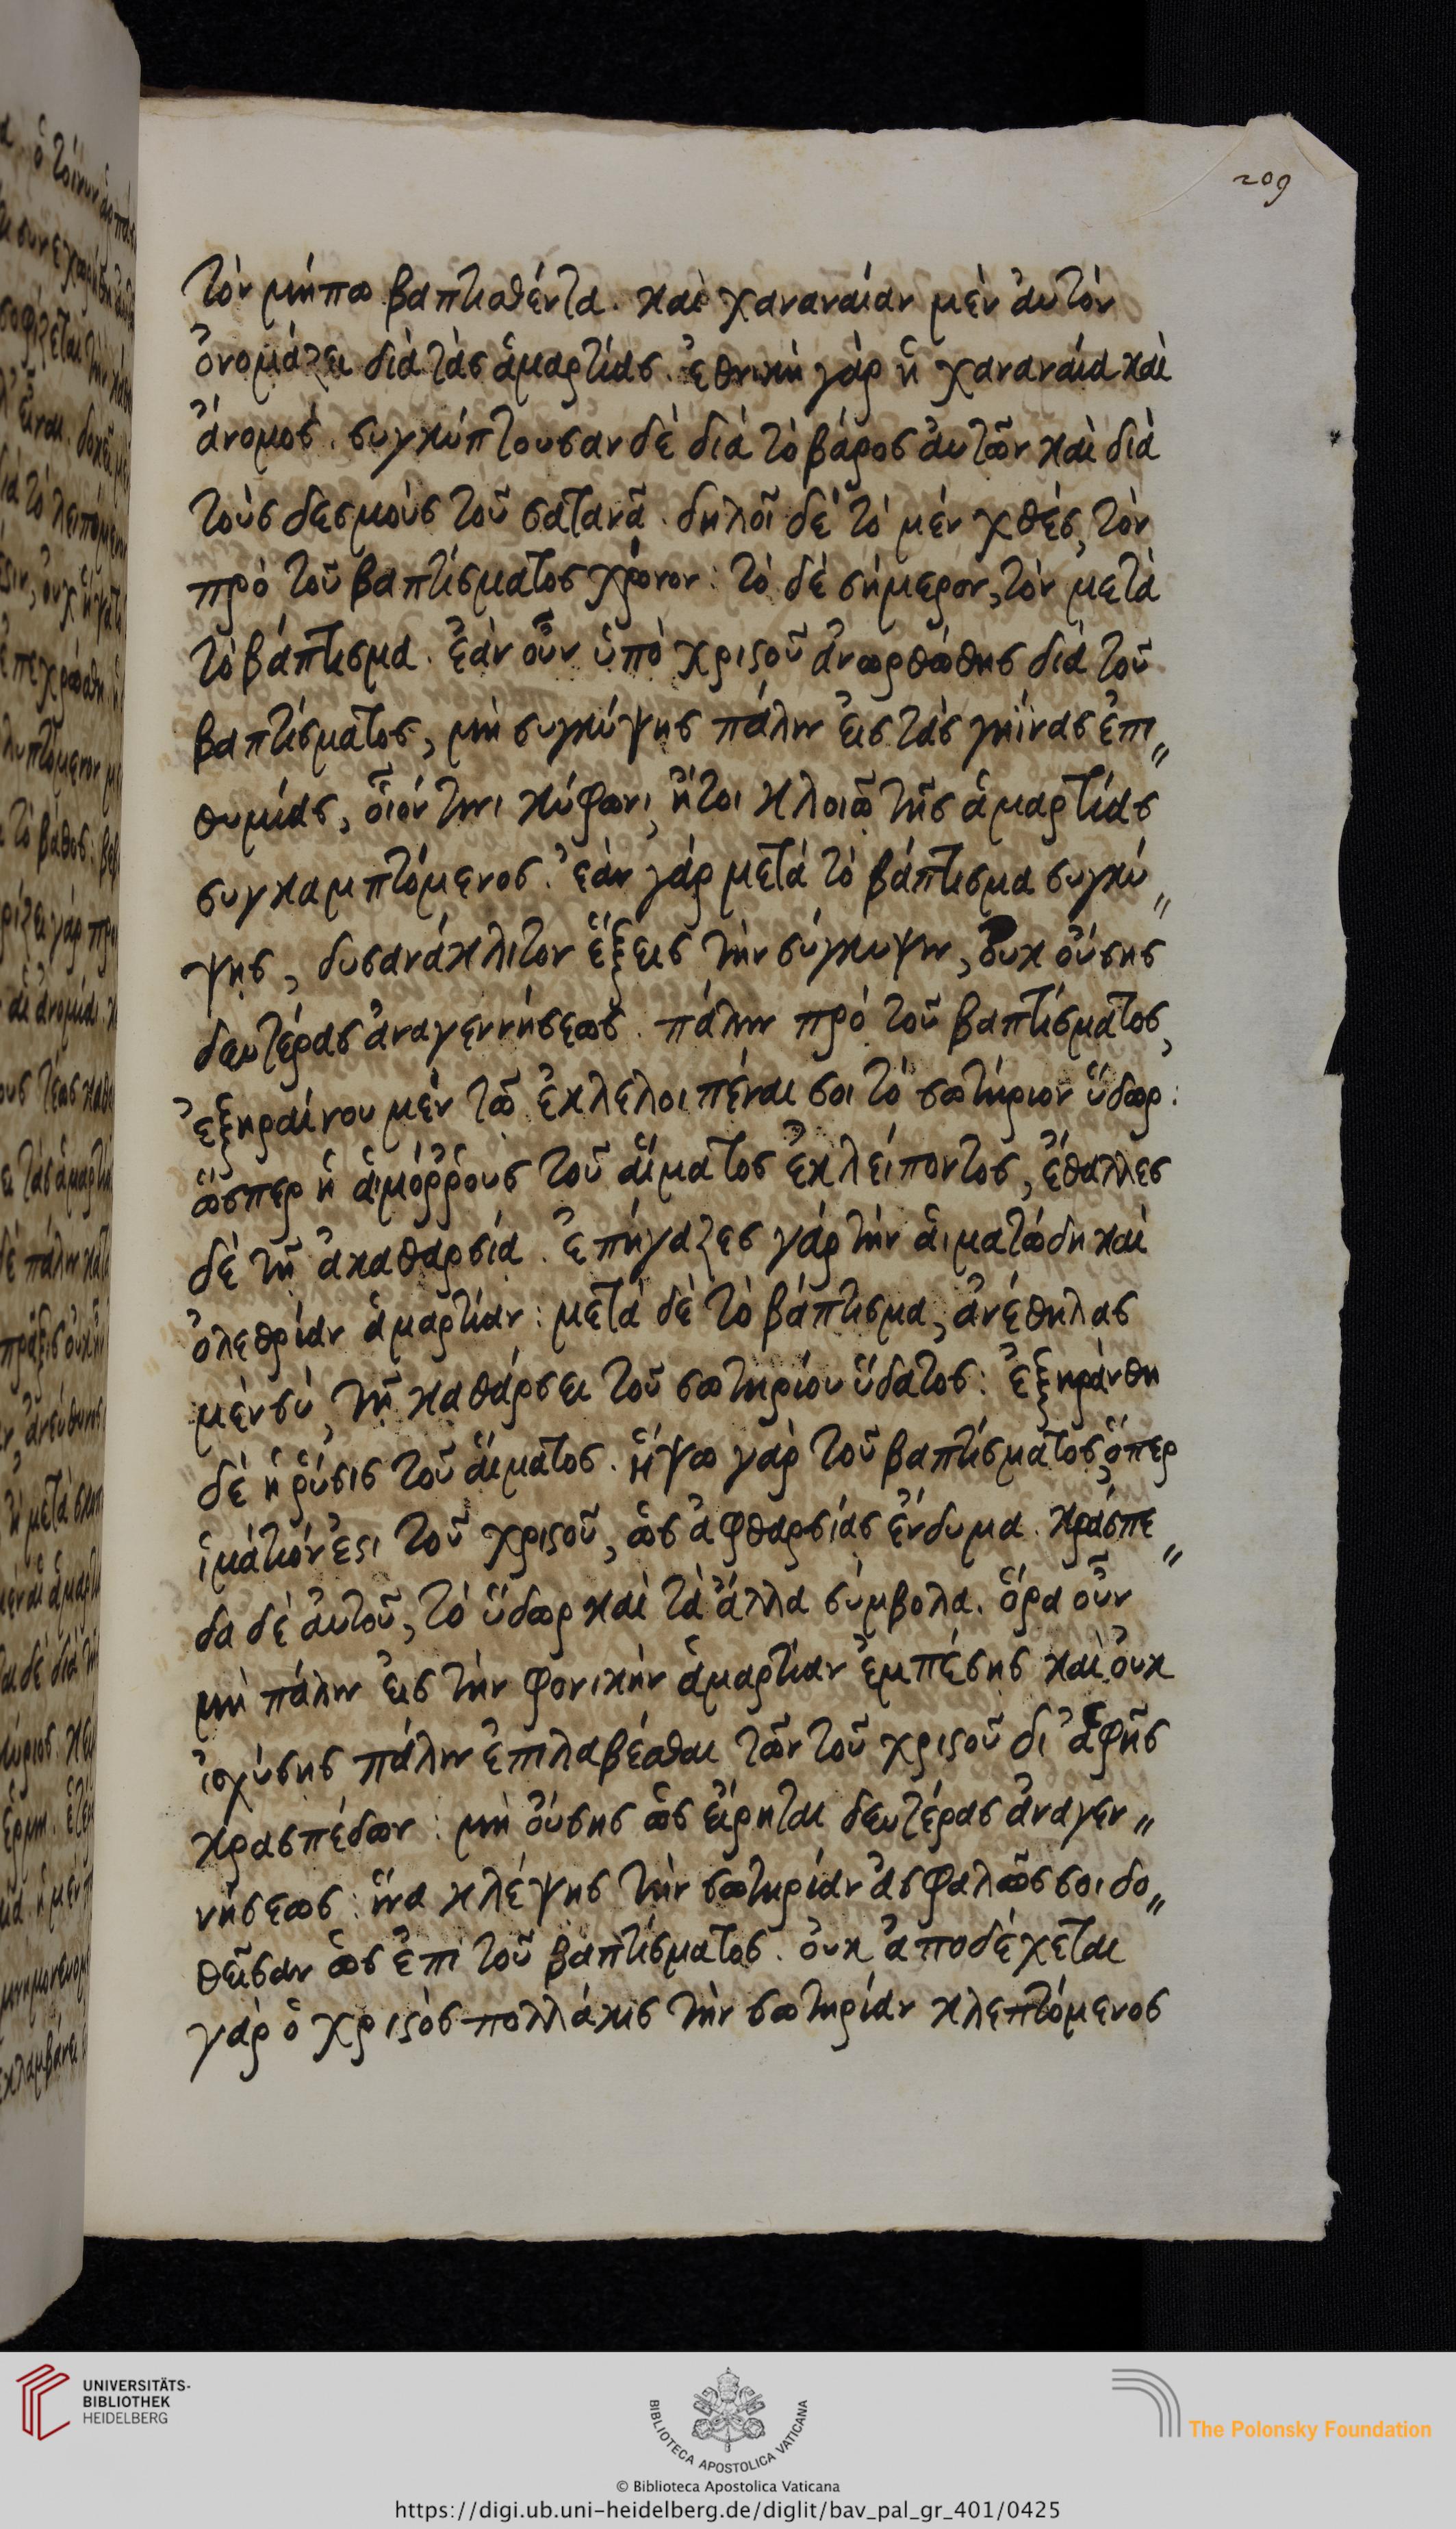 209
τὸν μήπω βαπτισθέντα. καὶ χαναναίαν μὲν ἀυτὸν
ὀνομάζει διὰ τὰς ἁμαρτίας. ἐθνικὴ γὰρ ἡ χαναναία καὶ
ἄνομος. συγκύπτουσαν δὲ διὰ τὸ βάρος ἀυτῶν καὶ διὰ
τοὺς δεσμοὺς τοῦ σατανᾶ. δηλοῖ δὲ τὸ μὲν χθὲς, τὸν
πρὸ τοῦ βαπτίσματος χρόνον: τὸ δὲ σήμερον, τὸν μετὰ
τὸ βάπτισμα. ἐὰν οὖν ὑπὸ χριστοῦ ἀνωρθώθης διὰ τοῦ
βαπτίσματος, μὴ συγκύψης πάλιν ἐις τὰς γηΐνας ἐπι〃
θυμίας, οἷόν τινι κύφωνι, ἤτοι κλοιῷ τῆς ἁμαρτίας
συγκαμπτόμενος. ἐὰν γὰρ μετὰ τὸ βάπτισμα συγκύ〃
ψης, δυσανάκλιτον ἕξεις τὴν σύγκυψιν, ὀυκ ὄυσης
δευτέρας ἀναγεννήσεως. πάλιν πρὸ τοῦ βαπτίσματος,
ἐξηραίνου μὲν τῶ ἐκλελοιπέναι σοι τὸ σωτήριον ὕδωρ:
ὥσπερ ἡ ἁιμόῤῥους τοῦ ἅιματος ἐκλείποντος, ἔθαλλες
δὲ τῆ ἀκαθαρσία. ἐπήγαζες γὰρ τὴν ἁιματώδη καὶ
ὀλεθρίαν ἁμαρτίαν: μετὰ δὲ τὸ βάπτισμα, ἀνέθηλας
μὲν σὺ, τῆ καθάρσει τοῦ σωτηρίου ὕδατος: ἐξηράνθη
δὲ ἡ ῥύσις τοῦ ἅιματος. ἥψω γὰρ τοῦ βαπτίσματος, ὅπερ
ἱμάτιόν ἐστι τοῦ χριστοῦ, ὡς ἀφθαρσίας ἔνδυμα. κράσπε〃
δα δὲ ἀυτοῦ, τὸ ὕδωρ καὶ τὰ ἄλλα σύμβολα. ὅρα οὖν
μὴ πάλιν ἐις τὴν φονικὴν ἁμαρτίαν ἐμπέσης καὶ ὀυκ
ἰσχύσης πάλιν ἐπιλαβέσθαι τῶν τοῦ χριστοῦ δι ἁφῆς
κρασπέδων: μὴ ὄυσης ὡς ἔιρηται δευτέρας ἀναγεν〃
νήσεως: ἵνα κλέψης τὴν σωτηρίαν ἀσφαλῶς σοι δο〃
θεῖσαν ὡς ἐπὶ τοῦ βαπτίσματος. ὀυκ ἀποδέχεται
γὰρ ὁ χριστὸς πολλάκις τὴν σωτηρίαν κλεπτόμενος
UNIVERSITÄTS-
BIBLIOTHEK
HEIDELBERG
BIBLIOTECA APOSTOLICA VATICANA
The Polonsky Foundation
© Biblioteca Apostolica Vaticana
https://digi.ub.uni-heidelberg.de/diglit/bav_pal_gr_401/0425